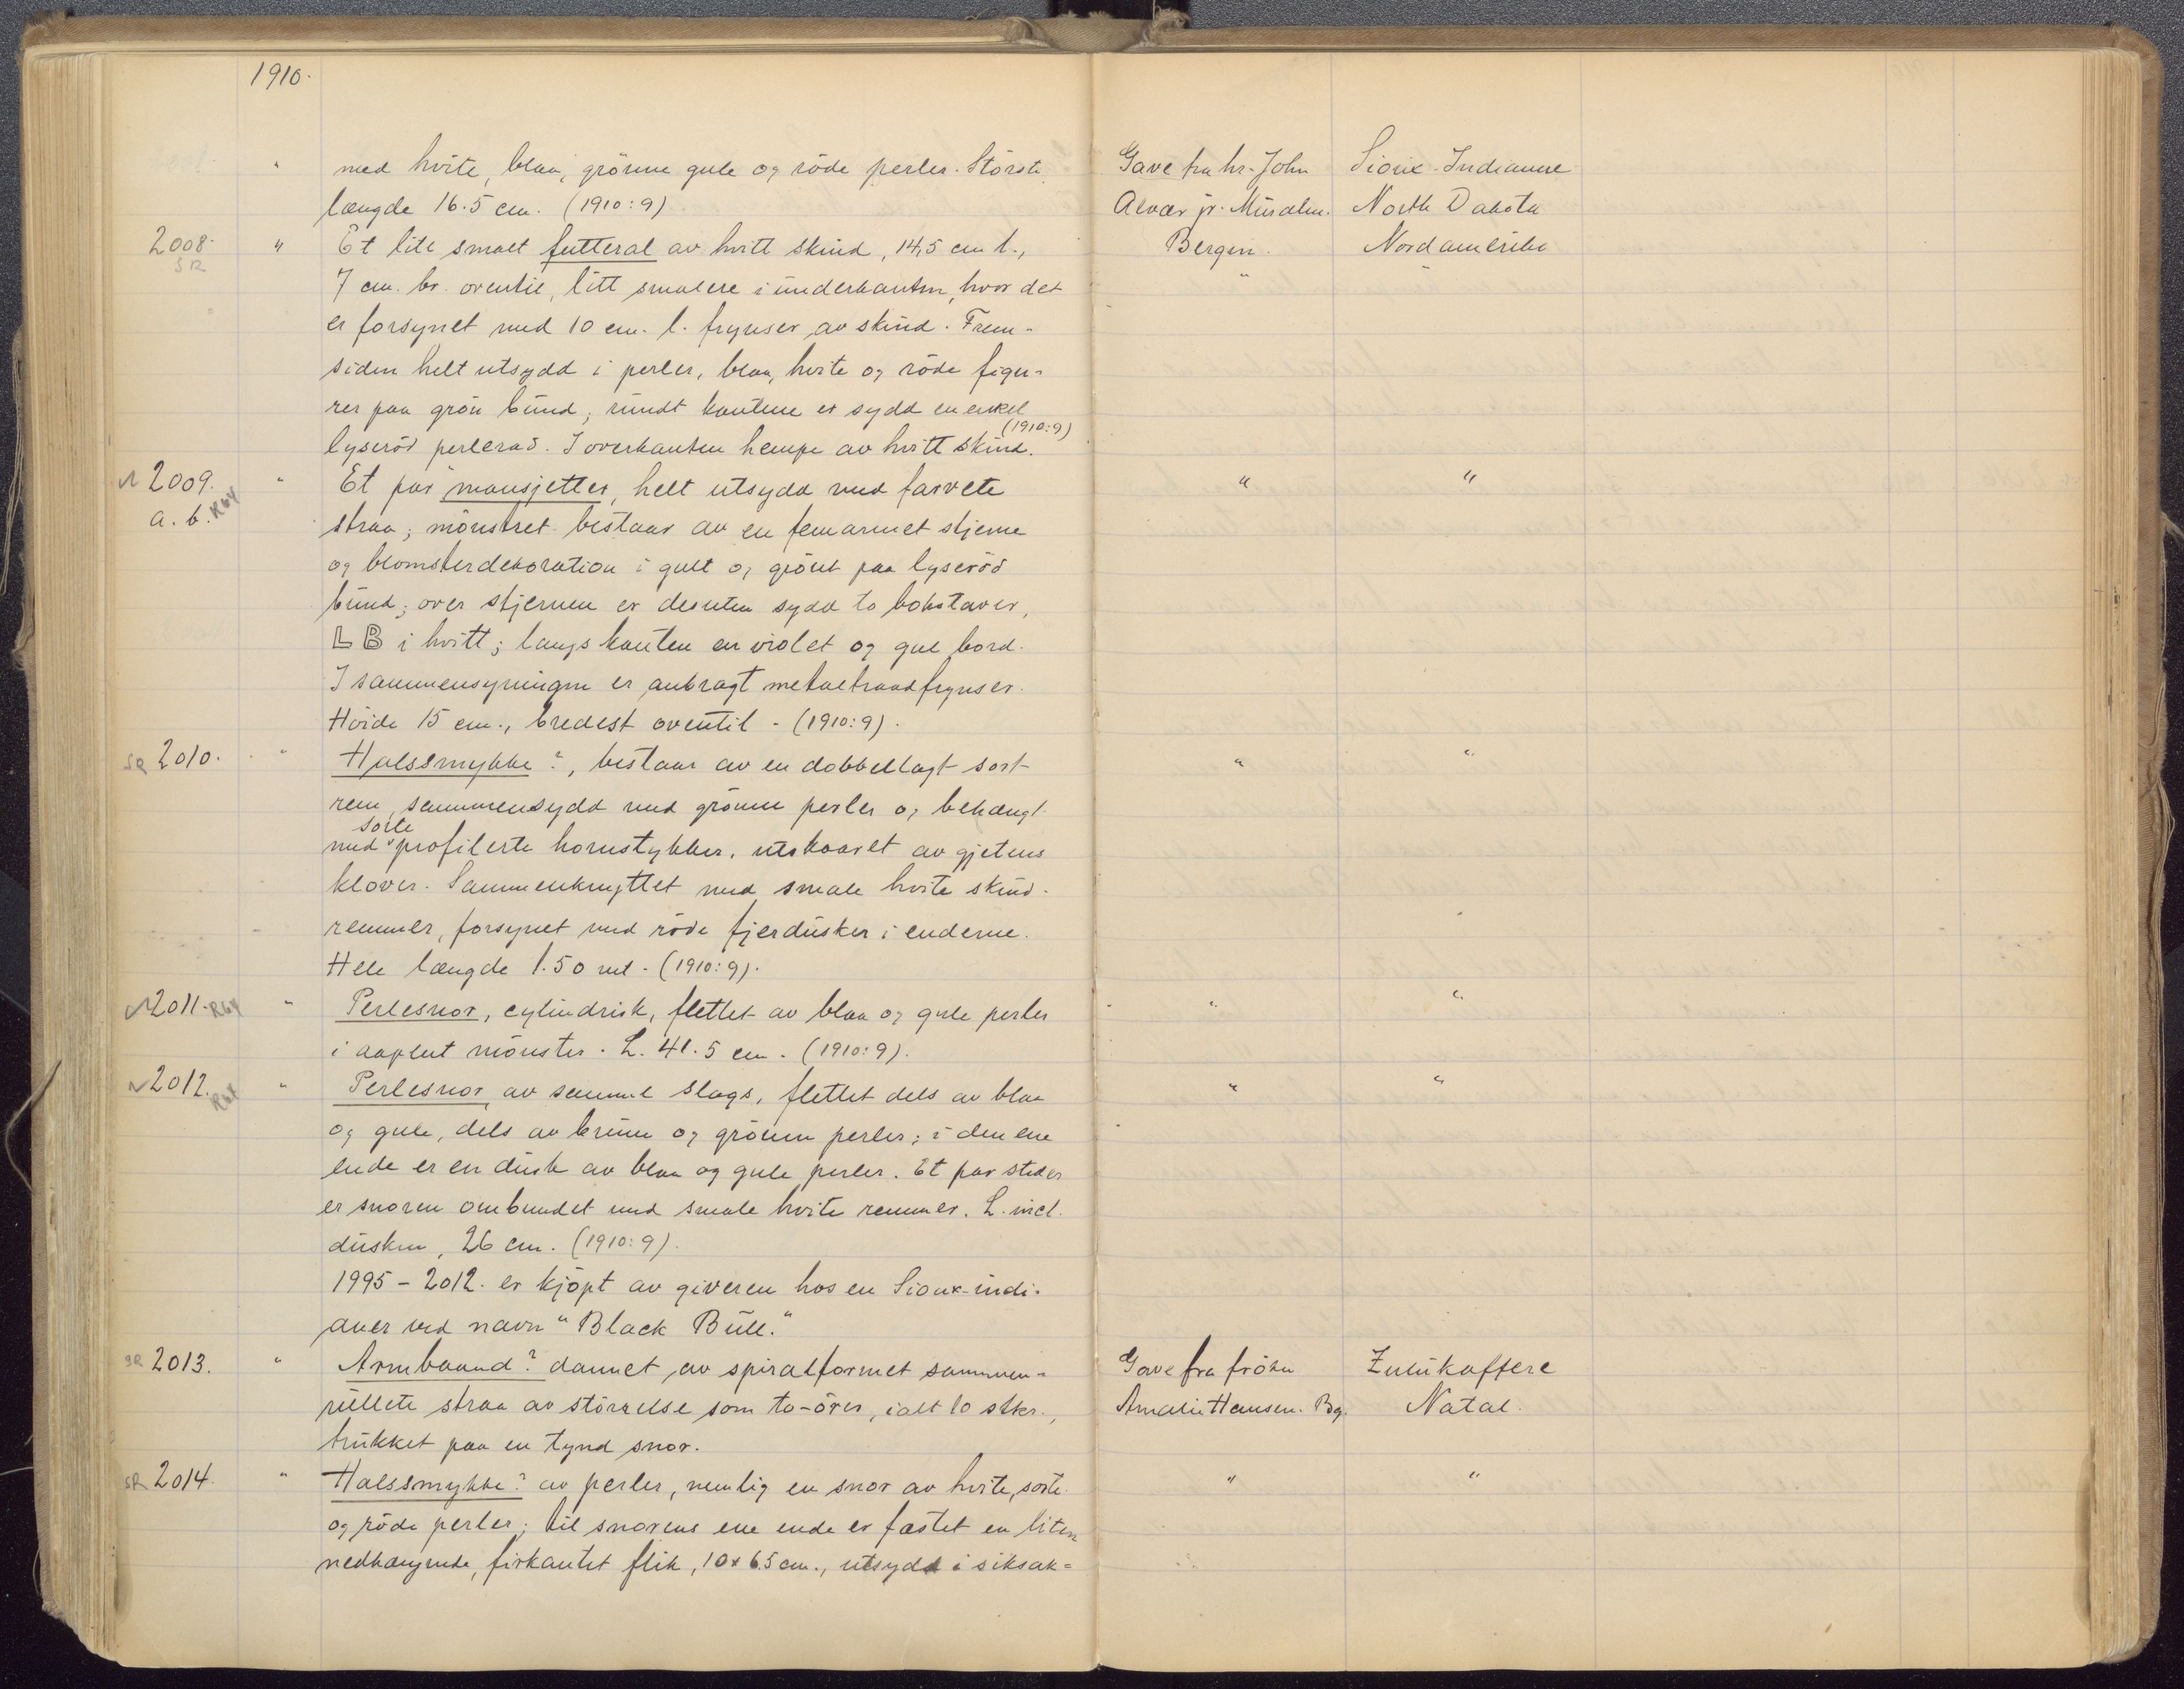 1910.
" med hvite, blaa, grönne gule og röde perler. Störste Gave fra hr. John Sioux-Indianere
længde 16.5 cm. (1910:9) Alvær jr. North Dakota
2008. " Et lite smalt futteral av hvitt skind, 14,5 cm l., Bergen. Nordamerika
SR
7 cm. br. oventil, litt smalere i underkanten, hvor det " "
er forsynet med 10 cm. l. frynser av skind. Frem-
siden helt utsydd i perler, blaa, hvite og röde figu-
rer paa grön bund; rundt kantene er sydd en enkel
lyseröd perlerad. I overkanten hempe av hvitt skind. (1910:9)
2009. " Et par mansjetter, helt utsydd med farvete " "
a. b. R64 straa; mönstret bestaar av en femarmet stjerne
og blomsterdekoration i gult og grönt paa lyseröd
bund; over stjernen er desuten sydd to bokstaver,
LB i hvitt; langs kanten en violet og gul bord.
I sammensyningen er anbragt metaltraadfrynser.
Höide 15 cm., bredest oventil - (1910:9).
SR 2010. " Halssmykke?, bestaar av en dobbeltlagt sort " "
rem, sammensydd med grönne perler og behængt
med sorte profilerte hornstykker, utskaaret av gjetens
klover. Sammenknyttet med smale hvite skind-
remmer, forsynet med röde fjerdusker i enderne.
Hele længde 1.50 mt. (1910:9).
2011. R64 " Perlesnor, cylindrisk, flettet av blaa og gule perler " "
i aapent mönster. L. 41.5 cm. (1910:9).
2012. R64 " Perlesnor, av samme slags, flettet dels av blaa " "
og gule, dels av brune og grönne perler; i den ene
ende er en dusk av blaa og gule perler. Et par steder
er snoren ombundet med smale hvite remmer. L. incl.
dusken, 26 cm. (1910:9).
1995 - 2012. er kjöpt av giveren hos en Sioux-indi-
aner ved navn "Black Bull."
SR 2013. " Armbaand? dannet av spiralformet sammen= Gave fra fröken Zulukaffere
rullete straa av störrelse som to-örer, ialt 10 stkr., Amalie Hansen. Bg. Natal.
trukket paa en tynd snor.
SR 2014. " Halssmykke? av perler, nemlig en snor av hvite, sorte " "
og röde perler; til snorens ene ende er fæstet en liten
nedhængende, firkantet flik, 10 x 6.5 cm., utsydd i siksak=